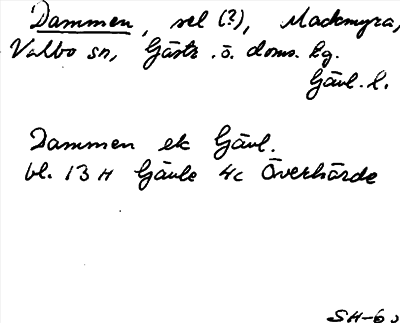 Dammen, sel (?), Mackmyra,
Valbo sn, Gästr. ö. doms. hg.
Gävl. l.
Dammen ek Gävl.
bl. 13 H Gävle 4c Överhärde
SH-6